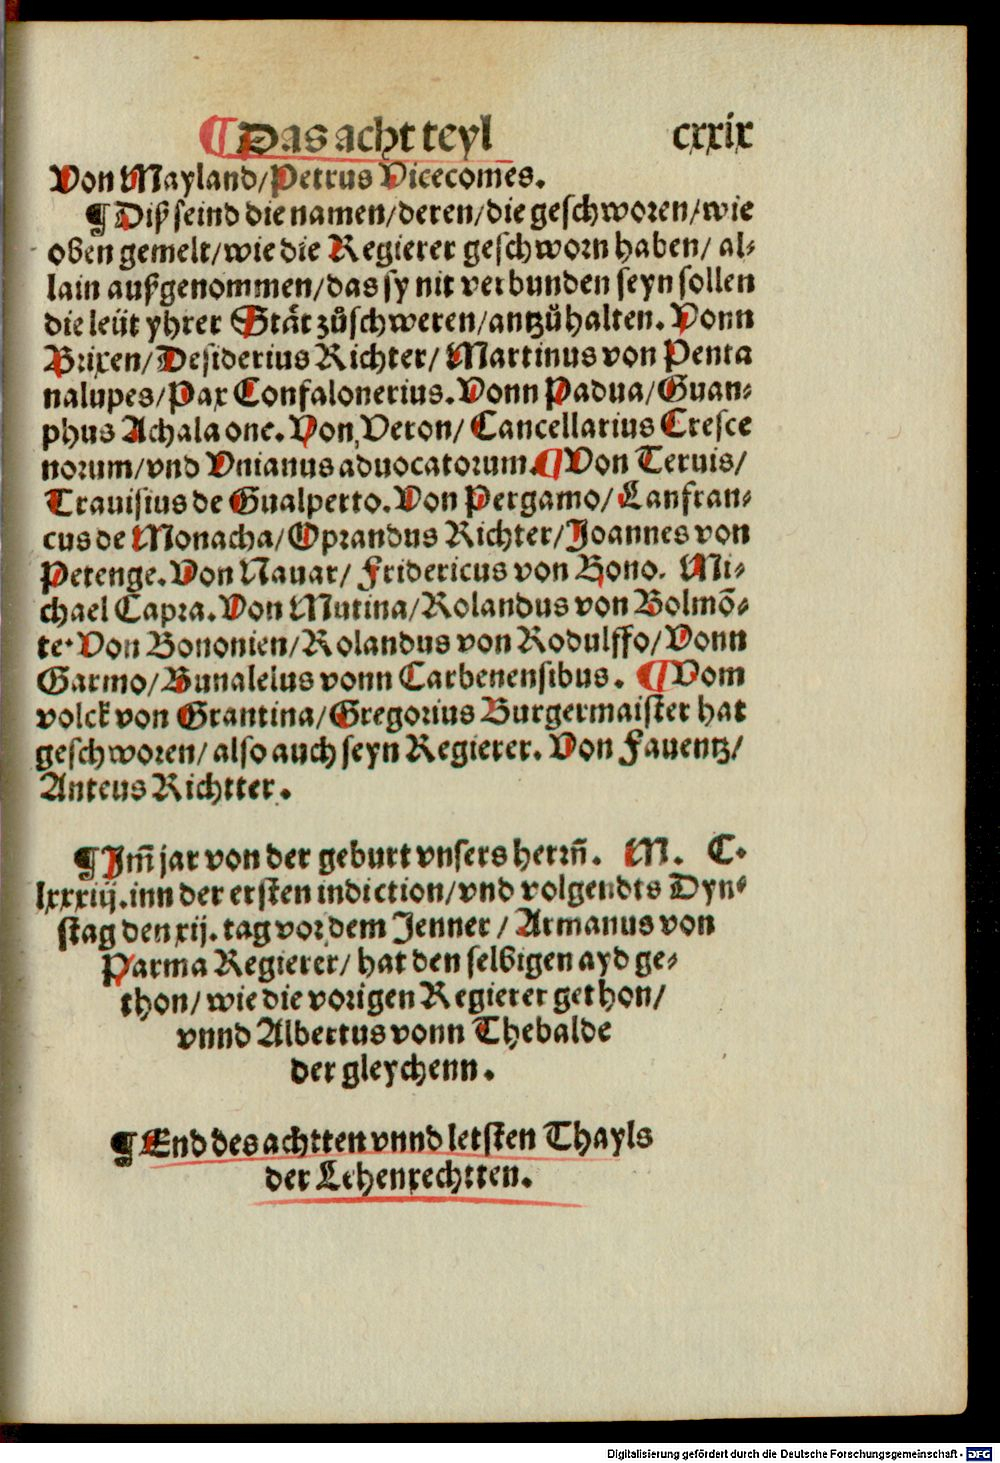 ¶ Das acht teyl cxxix
Von Mayland/Petrus Vicecomes.
¶ Diß seind die namen/deren/die geschworen/wie
oben gemelt/wie die Regierer geschworn haben/ al⸗
lain außgenommen/das sy nit verbunden seyn sollen
die leüt yhrer Stät zůschweren/antzůhalten. Vonn
Brixen/Desiderius Richter/ Martinus von Penta
nalupes/Pax Confalonerius. Vonn Padua/Guan⸗
phus Achala one. Von Veron/ Cancellarius Cresce
norum/vnd Vnianus aduocatorum. ¶ Von Teruis/
Trauisius de Gualperto. Von Pergamo/ Lanfran⸗
cus de Monacha/Oprandus Richter/Joannes von
Petenge. Von Nauar/ Fridericus von Bono. Mi⸗
chael Capra. Von Mutina/Rolandus von Bolmõ⸗
te. Von Bononien/Rolandus von Rodulffo/Vonn
Garmo/Bunalelus vonn Carbenensibus. ¶ Vom
volck von Grantina/Gregorius Burgermaister hat
geschworen/ also auch seyn Regierer. Von Fauentz/
Anteus Richtter.
¶ Im̃ jar von der geburt vnsers herrñ. M. C.
lxxxiij. inn der ersten indiction/vnd volgendts Dyn⸗
stag den xij. tag vor dem Jenner/ Armanus von
Parma Regierer/ hat den selbigen ayd ge⸗
thon/ wie die vorigen Regierer gethon/
vnnd Albertus vonn Thebalde
der gleychenn.
¶ End des achtten vnnd letsten Thayls
der Lehenrechtten.
Digitalisierung gefördert durch die Deutsche Forschungsgemeinschaft - DFG